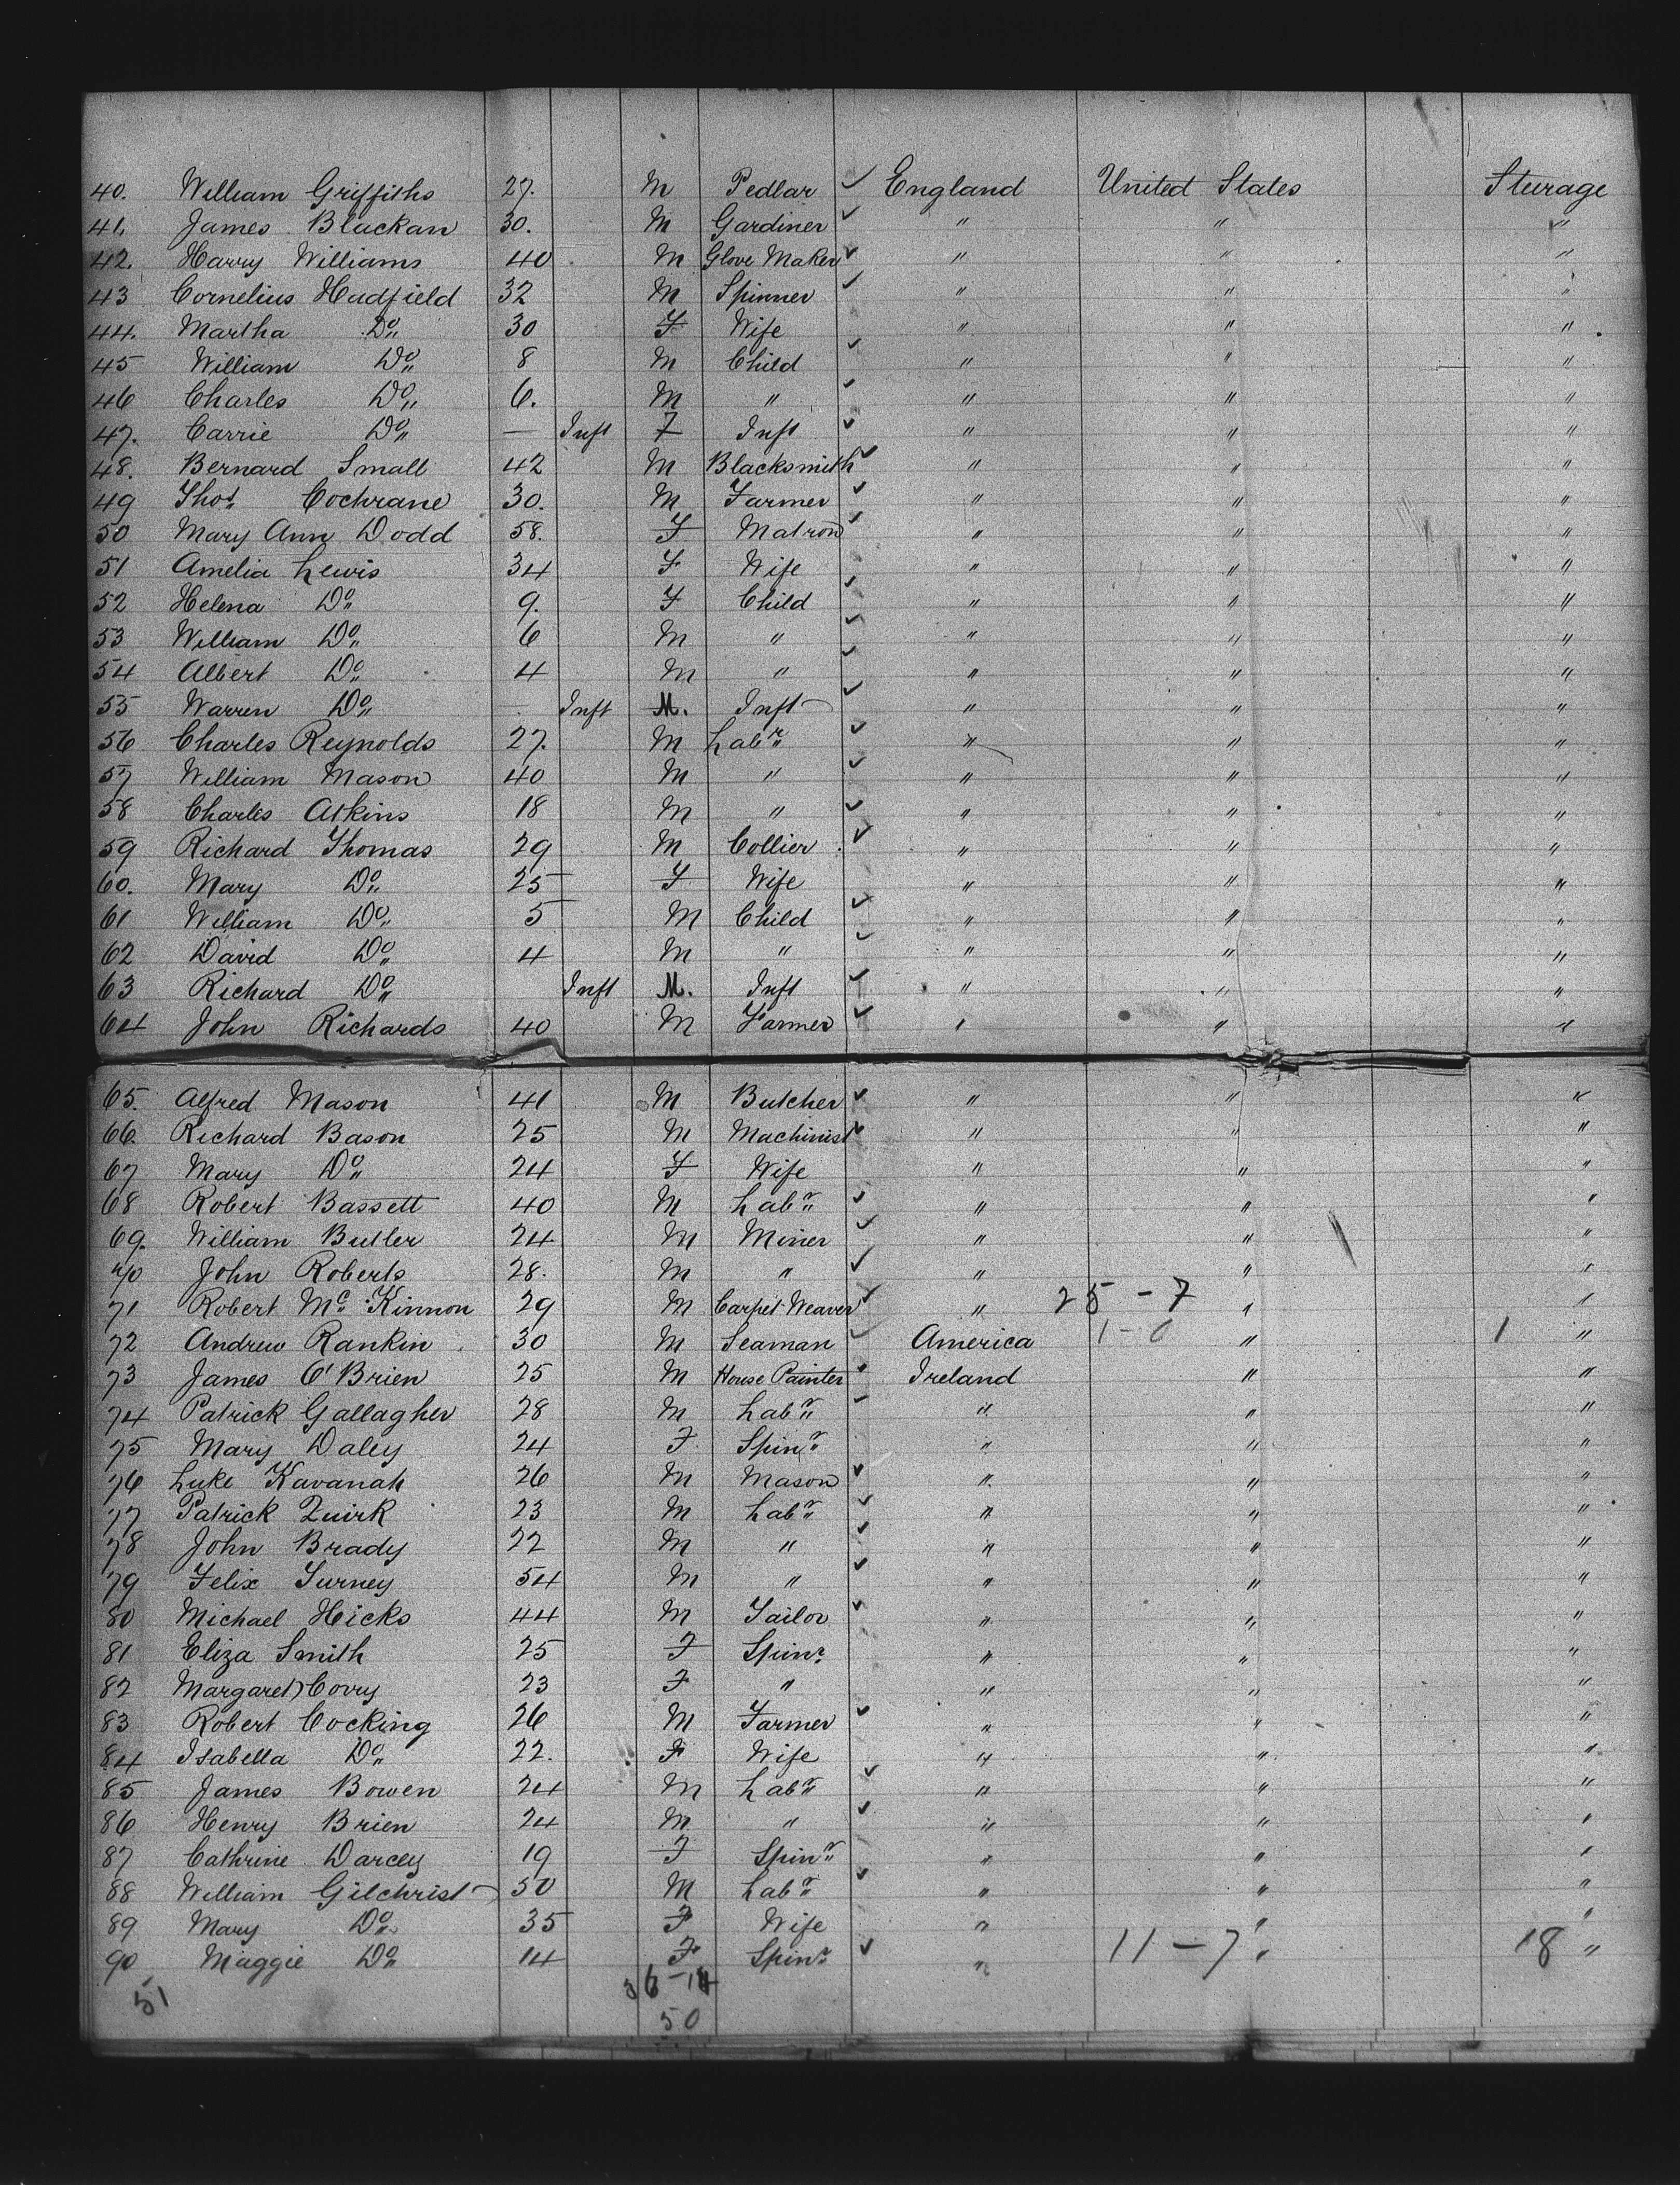 40. William Griffiths 27. M Pedlar ✓ England United States Steerage
41. James Blackan 30. M Gardiner ✓ " " "
42. Harry Williams 40 M Glove Maker ✓ " " "
43 Cornelius Hadfield 32 M Spinner ✓ " " "
44. Martha Do 30 F Wife " " "
45 William Do 8 M Child ✓ " " "
46 Charles Do 6. M " ✓ " " "
47. Carrie Do — Inft F Inft ✓ " " "
48. Bernard Small 42 M Blacksmith ✓ " " "
49 Thos Cochrane 30. M Farmer ✓ " " "
50 Mary Ann Dodd 58. F Matron ✓ " " "
51 Amelia Lewis 34 F Wife " " "
52 Helena Do 9. F Child ✓ " " "
53 William Do 6 M " ✓ " " "
54 Albert Do 4 M " ✓ " " "
55 Warren Do Inft M. Inft ✓ " " "
56 Charles Reynolds 27. M Labr ✓ " " "
57 William Mason 40 M " ✓ " " "
58 Charles Atkins 18 M " ✓ " " "
59 Richard Thomas 29 M Collier ✓ " " "
60. Mary Do 25 F Wife " " "
61 William Do 5 M Child ✓ " " "
62 David Do 4 M " ✓ " " "
63 Richard Do Inft M. Inft ✓ " " "
64 John Richards 40 M Farmer ✓ " " "
65. Alfred Mason 41 M Butcher ✓ " " "
66. Richard Bason 25 M Machinist ✓ " " "
67 Mary Do 24 F Wife " " "
68 Robert Bassett 40 M Labr ✓ " " "
69. William Butler 24 M Miner ✓ " " "
70 John Roberts 28. M " ✓ " " "
71 Robert Mc Kinnon 29 M Carpet Weaver ✓ " 25 - 7 " "
72 Andrew Rankin 30 M Seaman ✓ America 1 - 0 " 1 "
73 James O'Brien 25 M House Painter ✓ Ireland " "
74 Patrick Gallagher 28 M Labr ✓ " " "
75 Mary Daley 24 F Spinr " " "
76 Luke Kavanah 26 M Mason ✓ " " "
77 Patrick Quirk 23 M Labr ✓ " " "
78 John Brady 22 M " ✓ " " "
79 Felix Turney 54 M " ✓ " " "
80 Michael Hicks 44 M Tailor ✓ " " "
81 Eliza Smith 25 F Spinr " " "
82 Margaret Covry 23 F " " " "
83 Robert Cocking 26 M Farmer ✓ " " "
84 Isabella Do 22. F Wife " " "
85 James Bowen 24 M Labr ✓ " " "
86 Henry Brien 24 M " ✓ " " "
87 Cathrine Darcey 19 F Spinr " " "
88 William Gilchrist 50 M Labr ✓ " " "
89 Mary Do 35 F Wife " " "
90 Maggie Do 14 F Spinr ✓ " 11 - 7 " 18 "
51 36 - 14
50